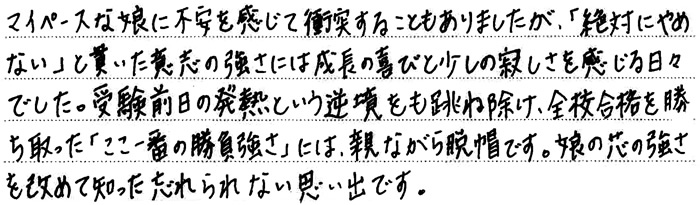 マイペースな娘に不安を感じて衝突することもありましたが、「絶対にやめ
ない」と貫いた意志の強さには成長の喜びと少しの寂しさを感じる日々
でした。受験前日の発熱という逆境をも跳ね除け、全校合格を勝
ち取った「ここ一番の勝負強さ」には、親ながら脱帽です。娘の芯の強さ
を改めて知った忘れられない思い出です。